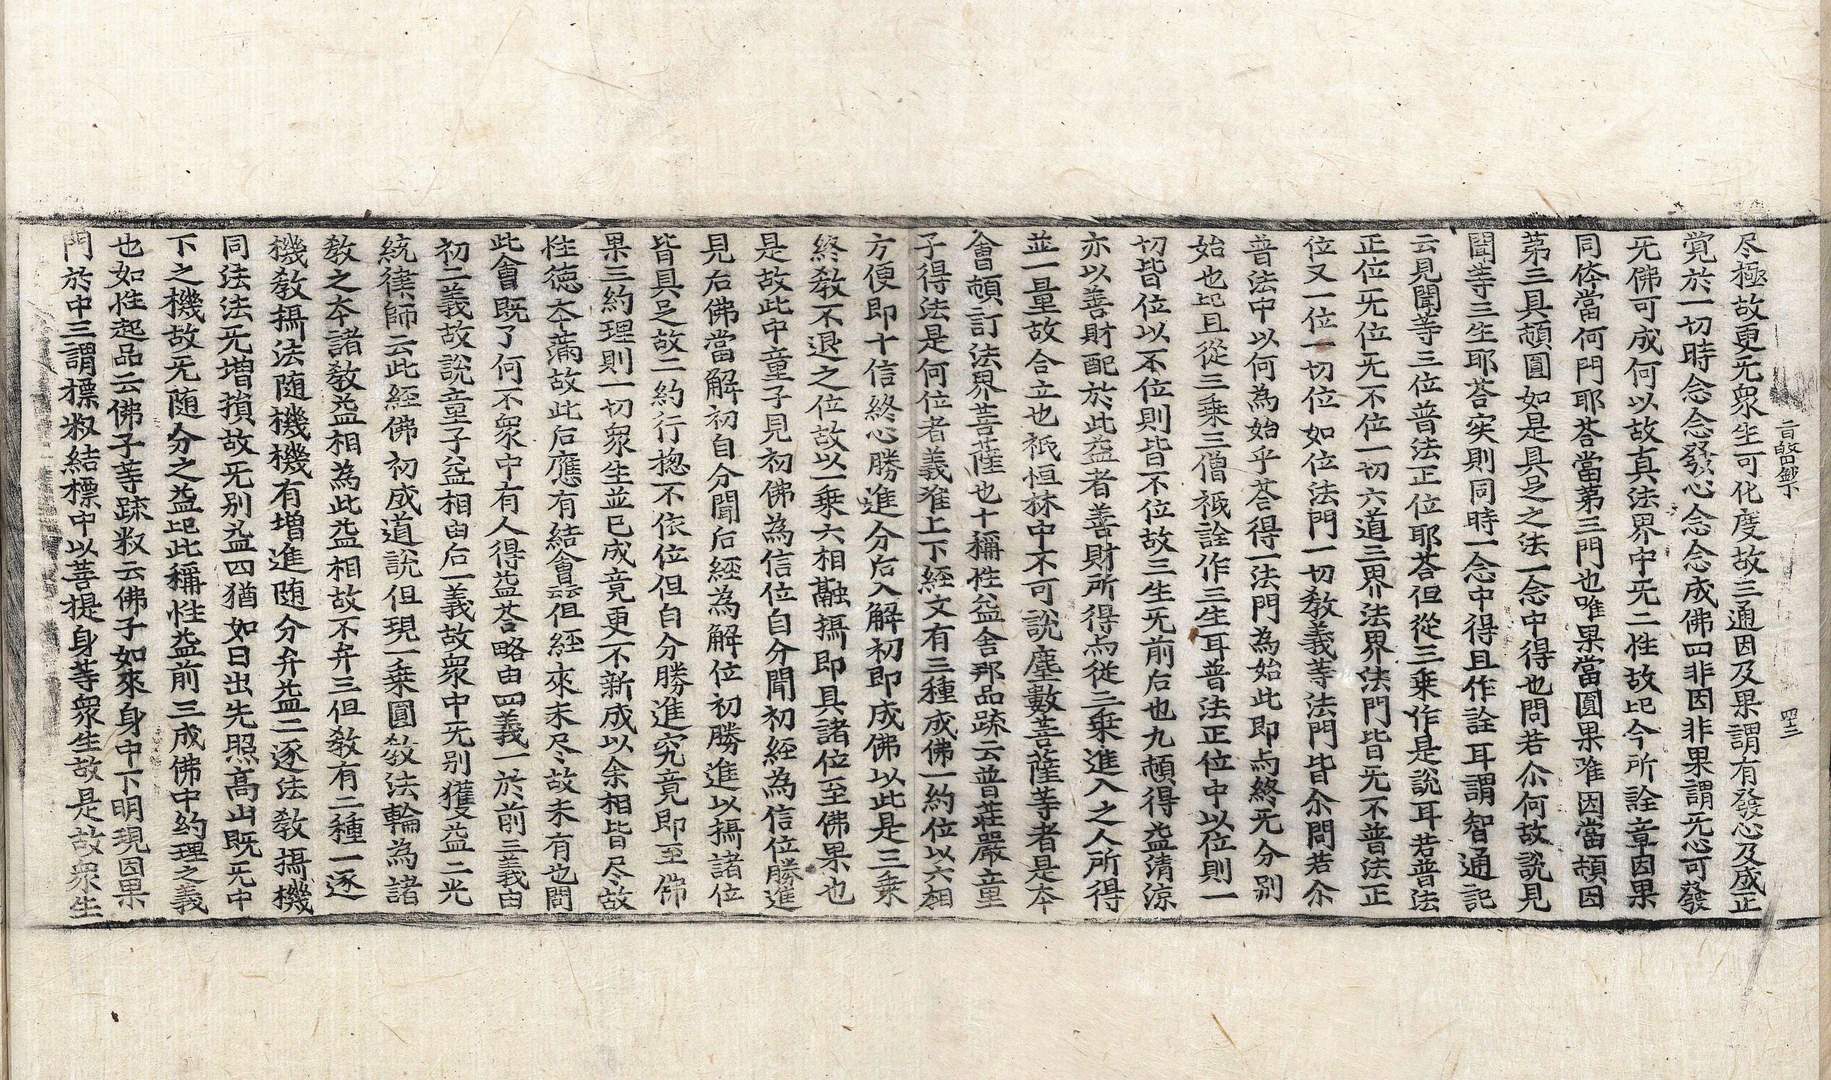 旨歸鈔下 四三
尽極故更旡衆生可化度故三通因及果謂有發心及成正
覺於一切時念念發心念念成佛四非因非果謂旡心可發
旡佛可成何以故真法界中旡二性故記今所詮章因果
同倐當何門耶荅當第三門也唯果當圓果唯因當頓因
第三具頓圓如是具足之法一念中得也問若尒何故說見
聞等三生耶荅实則同時一念中得且作詮耳謂智通記
云見聞等三位普法正位耶荅但從三乗作是說耳若普法
正位旡位旡不位一切六道三界法界法門皆旡不普法正
位又一位一切位如位法門一切教義等法門皆尒問若尒
普法中以何為始乎荅得一法門為始此即与終旡分別
始也記且從三乗三僧祇詮作三生耳普法正位中以位則一
切皆位以不位則皆不位故三生旡前后也九頓得益清涼
亦以善財配於此益者善財所得与從三乗進入之人所得
並一量故合立也祇恒林中不可說塵數菩薩等者是本
會頓訂法界菩薩也十稱性益舍那品疏云普莊嚴童
子得法是何位者義准上下経文有三種成佛一約位以六相
方便即十信終心勝進分后入解初即成佛以此是三乗
終教不退之位故以一乗六相融攝即具諸位至佛果也
是故此中童子見初佛為信位自分聞初経為信位勝進
見后佛當解初自分聞后経為解位初勝進以攝諸位
皆具足故二約行揔不依位但自分勝進究竟即至佛
果三約理則一切衆生並已成竟更不新成以余相皆尽故
性德夲滿故此后應有結會云但経來未尽故未有也問
此會既了何不衆中有人得益荅略由四義一於前三義由
初二義故說童子益相由后一義故衆中旡别獲益二光
統律師云此経佛初成道說但現一乗圓教法輪為諸
教之夲諸教益相為此益相故不弁三但教有二種一逐
機教攝法随機機有增進随分弁益二逐法教攝機
同法法旡增損故旡别益四猶如日出先照高山既旡中
下之機故旡随分之益記此稱性益前三成佛中約理之義
也如性起品云佛子等疏釈云佛子如來身中下明現因果
門於中三謂標釈結標中以菩提身等衆生故是故衆生